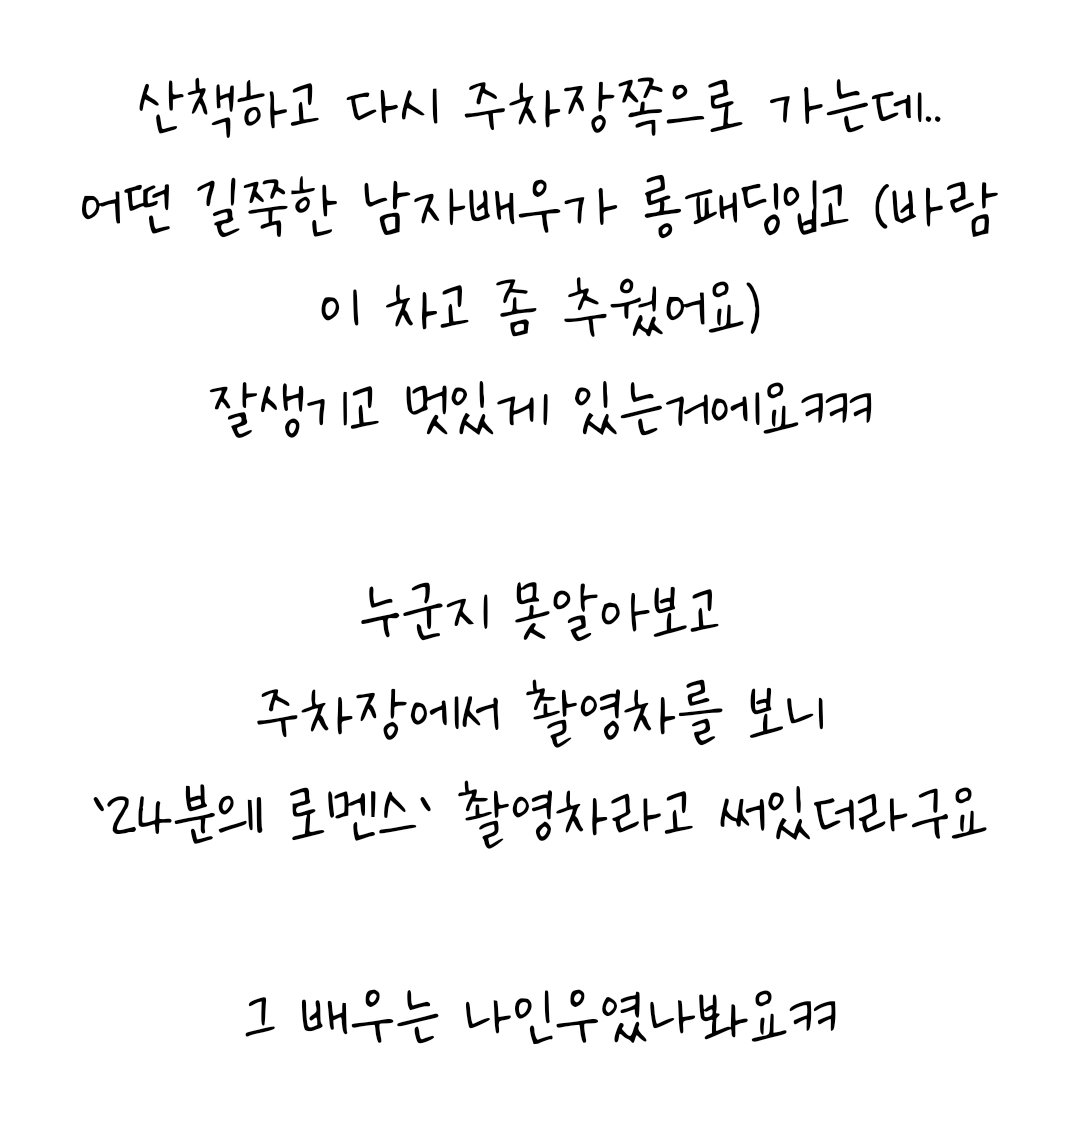 산책하고 다시 주차장쪽으로 가는데..
어떤 길쭉한 남자배우가 롱패딩입고 (바람
이 차고 좀 추웠어요)
잘생기고 멋있게 있는거에요ㅋㅋㅋ
누군지 못알아보고
주차장에서 촬영차를 보니
'24분의1 로멘스' 촬영차라고 써있더라구요
그 배우는 나인우였나봐요ㅋㅋ